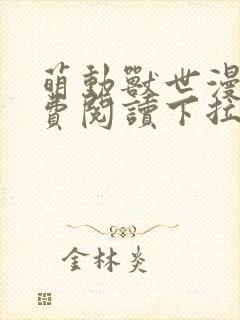 萌動獸世漫
費閱讀下拉
金林炎